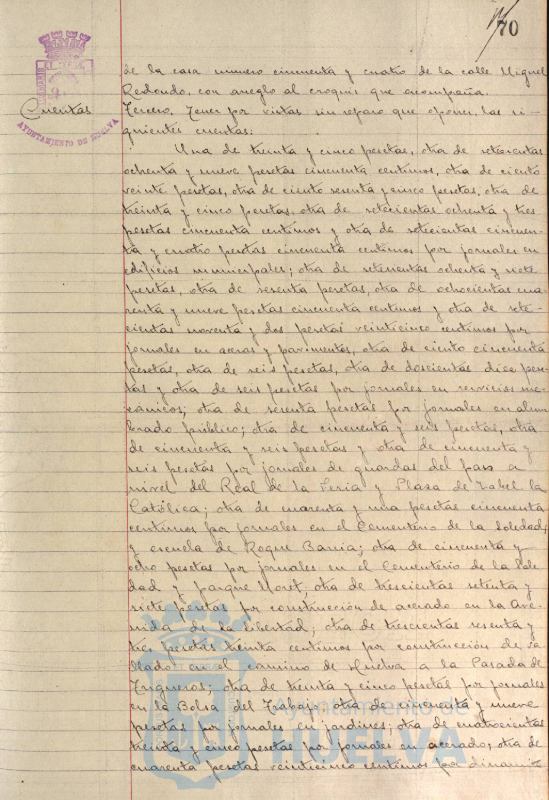 70
de la casa numero cincuenta y cuatro de la calle Miguel
Redondo, con arreglo al croquis que acompaña.
Cuentas
Tercero. Tener por vistas sin reparo que oponer, las si-
guientes cuentas:
Una de treinta y cinco pesetas, otra de setecientas
ochenta y nueve pesetas cincuenta centimos, otra de ciento
veinte pesetas, otra de ciento sesenta y cinco pesetas, otra de
treinta y cinco pesetas, otra de setecientas ochenta y tres
pesetas cincuenta centimos y otra de setecientas cincuen-
ta y cuatro pesetas cincuenta centimos por jornales en
edificios municipales; otra de setecientas ochenta y siete
pesetas, otra de sesenta pesetas, otra de ochocientas cua-
renta y nueve pesetas cincuenta centimos y otra de sete-
cientas noventa y dos pesetas veinticinco centimos por
jornales en aceras y pavimentos, otra de ciento cincuenta
pesetas, otra de seis pesetas, otra de doscientas diez pese-
tas y otra de seis pesetas por jornales en servicios me-
canicos; otra de sesenta pesetas por jornales en alum-
brado público; otra de cincuenta y seis pesetas, otra
de cincuenta y seis pesetas y otra de cincuenta y
seis pesetas por jornales de guardas del paso a
nivel del Real de la Feria y Plaza de Isabel la
Católica; otra de cuarenta y una pesetas cincuenta
centimos por jornales en el Cementerio de la Soledad,
y escuela de Roque Barcia; otra de cincuenta y
ocho pesetas por jornales en el Cementerio de la Sole
dad y parque Moret, otra de trescientas setenta y
siete pesetas por construcción de acerado en la Ave-
nida de la Libertad; otra de trescientas sesenta y
tres pesetas treinta centimos por construcción de va
llado en el camino de Huelva a la Pasada de
Trigueros; otra de treinta y cinco pesetas por jornales
en la Bolsa del Trabajo, otra de cincuenta y nueve
pesetas por jornales en jardines; otra de cuatrocientas
treinta y cinco pesetas por jornales en acerados, otra de
cuarenta pesetas veinticinco centimos por dinamita
AYUNTAMIENTO DE HUELVA
Ayuntamiento de
HUELVA